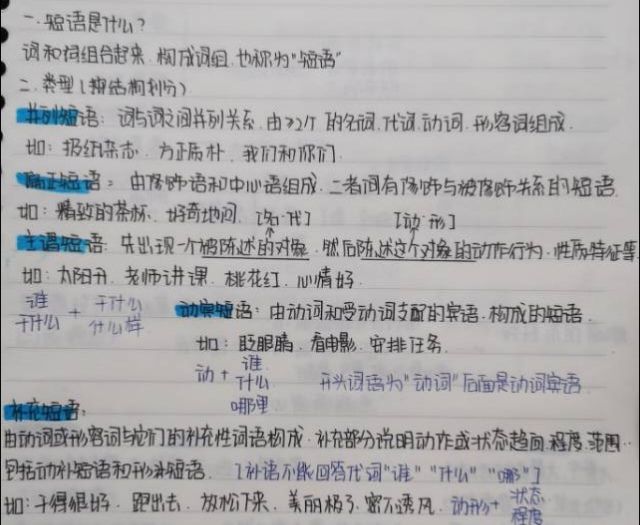 一.短语是什么?
词和词组合起来.构成词组.也称为"短语"
二.类型(按结构划分)
并列短语:词与词之间并列关系.由≥2个的名词.代词.动词.形容词组成.
如:报纸杂志.方正质朴.我们和你们.
偏正短语:由修饰语和中心语组成.二者间有修饰与被修饰关系的短语.
如:精致的茶杯.好奇地问.[名·代] [动·形]
主谓短语:先出现一个被陈述的对象.然后陈述这个对象的动作行为.性质特征等
如:太阳升.老师讲课.桃花红.心情好.
谁 干什么 + 干什么 什么样
动宾短语:由动词和受动词支配的宾语.构成的短语.
如:眨眼睛.看电影.安排任务.
动+ 谁 什么 哪里 开头词语为"动词"后面是动词宾语.
补充短语:
由动词或形容词与它们的补充性词语构成.补充部分说明动作或状态趋向.程度.范围..
包括动补短语和形补短语.[补语不能回答代词"谁""什么""哪"]
如:干得很好.跑出去.放松下来.美丽极了.密不透风.动形+ 状态 程度